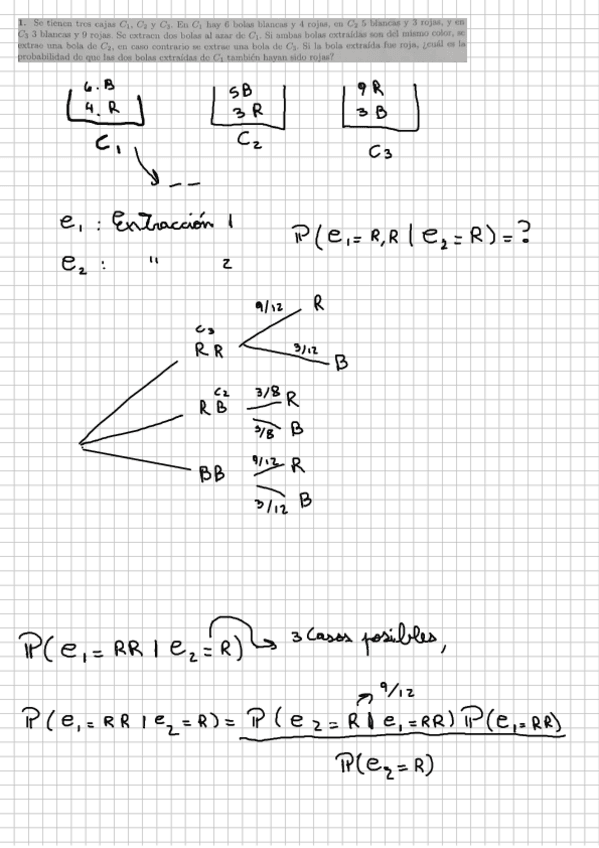 1. Se tienen tres cajas C₁, C₂ y C₃. En C₁ hay 6 bolas blancas y 4 rojas, en C₂ 5 blancas y 3 rojas, y en
C₃ 3 blancas y 9 rojas. Se extraen dos bolas al azar de C₁. Si ambas bolas extraídas son del mismo color, se
extrae una bola de C₂, en caso contrario se extrae una bola de C₃. Si la bola extraída fue roja, ¿cuál es la
probabilidad de que las dos bolas extraídas de C₁ también hayan sido rojas?
6. B
4. R
C₁
5B
3 R
C₂
9 R
3 B
C₃
e₁ : Extracción 1
e₂ : " 2
P(e₁ = R,R | e₂ = R) = ?
C₃
R R
9/12 R
3/12 B
C₂
R B
3/8 R
3/8 B
BB
9/12 R
3/12 B
P(e₁ = RR | e₂ = R) → 3 casos posibles,
9/12
P(e₁ = RR | e₂ = R) = P(e₂ = R | e₁ = RR) P(e₁ = RR)
P(e₂ = R)